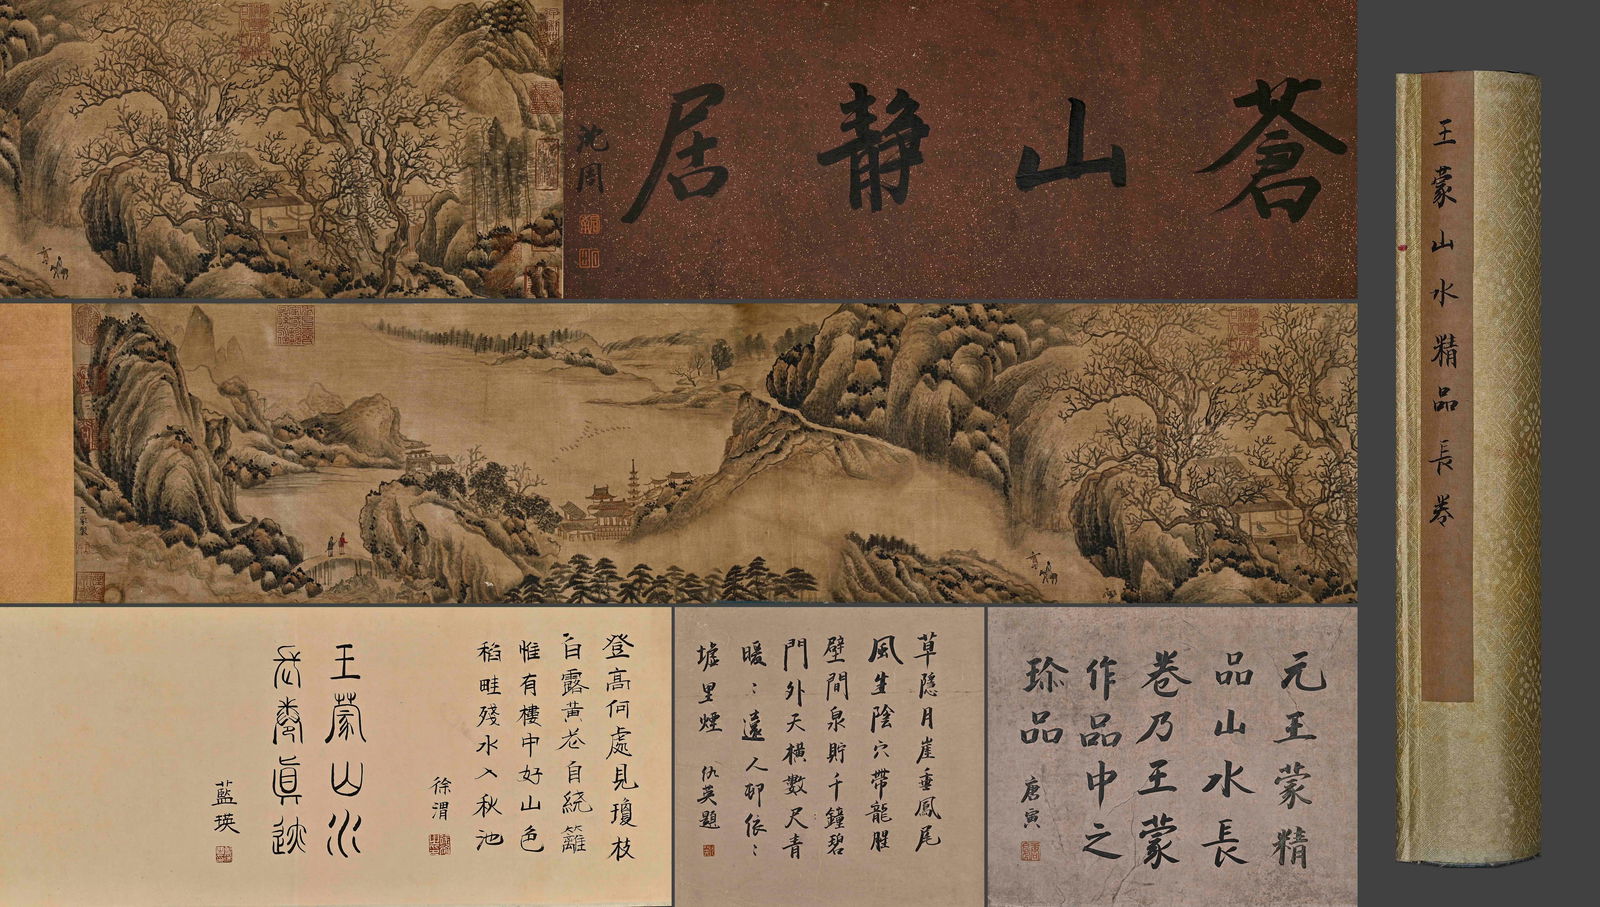 蒼山靜居
沈周
王蒙製
王蒙山水精品長卷
元王蒙精
品山水長
卷乃王蒙
作品中之
珎品
唐寅
草隱月崖垂鳳尾
風生陰穴帶龍腥
壁間泉貯千鐘碧
門外天橫數尺青
暖:遠人邨依:
墟里煙
仇英題
登高何處見瓊枝
白露黃花自繞籬
惟有樓中好山色
稻畦殘水入秋池
徐渭
王蒙山水
長卷真迹
藍瑛